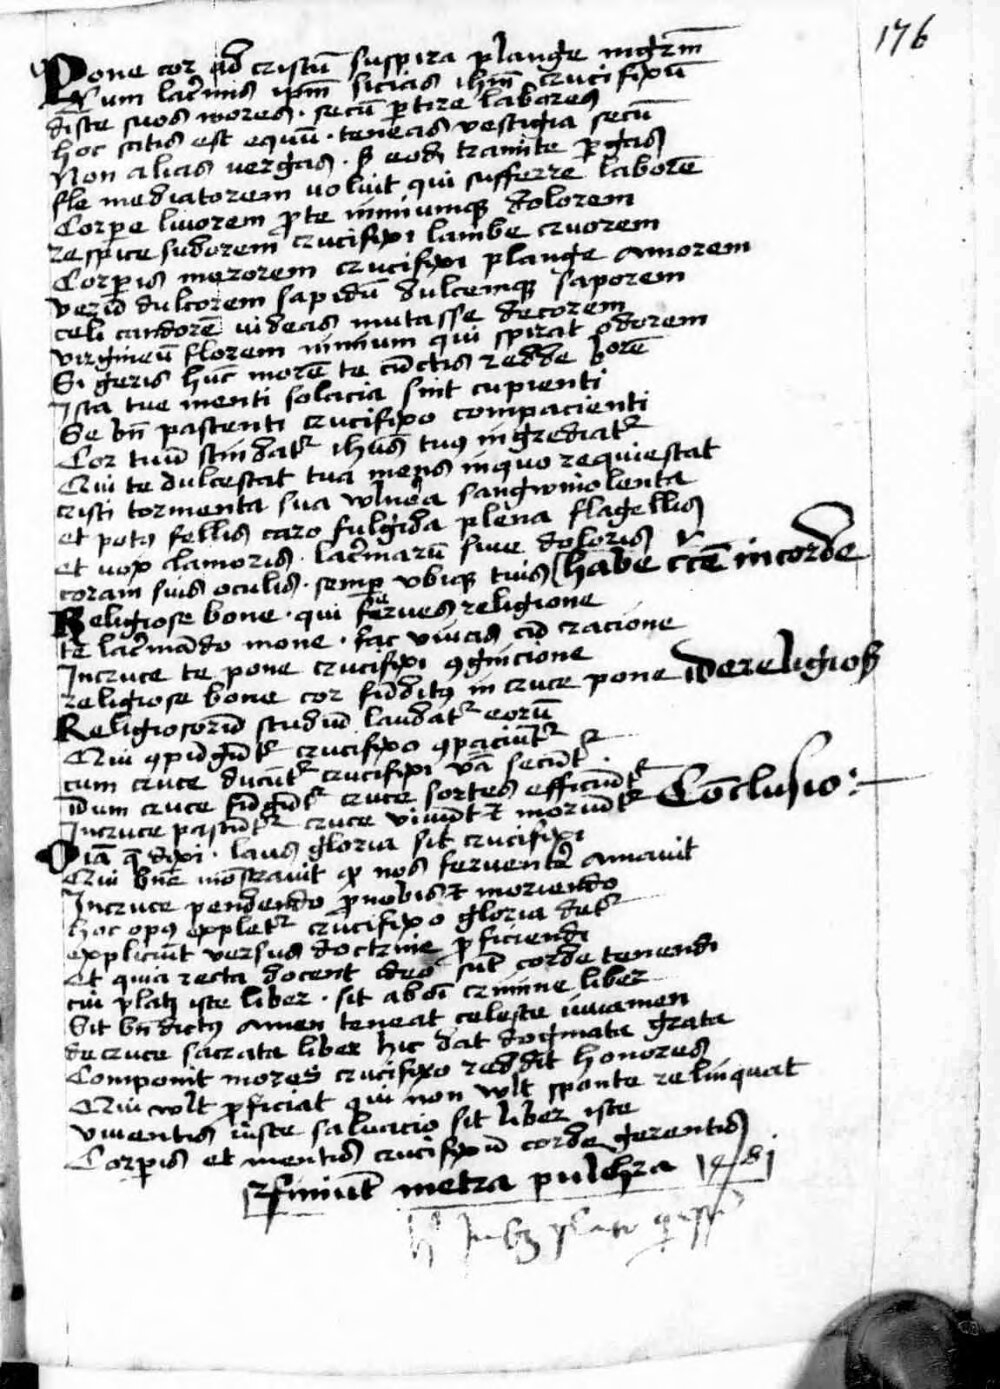 176
Pone cor ad cristū suspira plange
Cum lacrimis ipm̄ sicias ihm̄ crucifixū
disce suos mores · secū ptire labores
hoc satis est equū · teneas vestigia secū
Non alias vergas · s; eodē tramite pgas
fle mediatorem voluit qui sufferre laborē
Corpe livorem p te nimiumq; dolorem
respice sudorem crucifixi lambe cruorem
Corpis merorem crucifixi plange amorem
verū dulcorem sapidū dulcemq; saporem
celi candorē videas mutasse decorem
virgineū florem nimium qui spirat odorem
Si geris hūc morē te cūctis redde
Ista tue menti solacia sint cupienti
Se bn̄ pascenti crucifixo compacienti
Cor tuū scindat ihūs tuus ingrediat
Qui te dulcescat tua mens in quo requiescat
cristi tormenta sua wlnea sangwinolenta
et potus fellis caro fulgida plena flagellis
et vox clamoris · lacrimarū sive doloris
coram suis oculis · semp ubiq; tuis habe in corde
Religiose bone · qui ferves religione
te lacrimādo mone · fac vivas cū racione
In cruce te pone crucifixi cognicione
religiose bone cor funditus in cruce pone de religios
Religiosorū studiū laudat eorū
Qui crucifixo
cum cruce ducūt crucifixi secūt
dum cruce cruce sortes efficiūt
In cruce pascūt cruce vivūt et moriūt Conclusio :
dixi · laus gloria sit crucifixi
Qui bn̄e monstravit p nos ferventer amavit
In cruce pendendo p nobis et moriendo
hoc opus explet crucifixo gloria det
expliciūt versus doctrine pficiendi
Et quia recta docent ideo sūt corde tenendi
cui placz iste liber · sit ab oī crimine liber
Sit bn̄dictus amen teneat celeste iuvamen
de cruce sacrata liber hic dat dogmata grata
Componit mores crucifixo reddit honores
Qui wlt pficiat qui non wlt sponte relinquat
viventis iuste salvacio sit liber iste
Corpis et mentis crucifixū corde gerentis
finiūt metra pulchra 1481